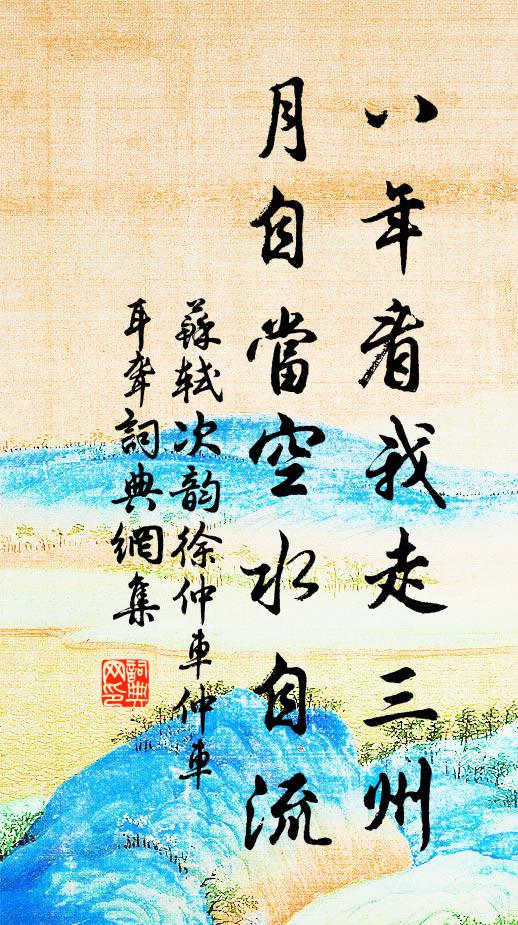 八年看我走三州
月自當空水自流
蘇軾次韵徐仲車仲車
耳聋詞典網集
詞典网印